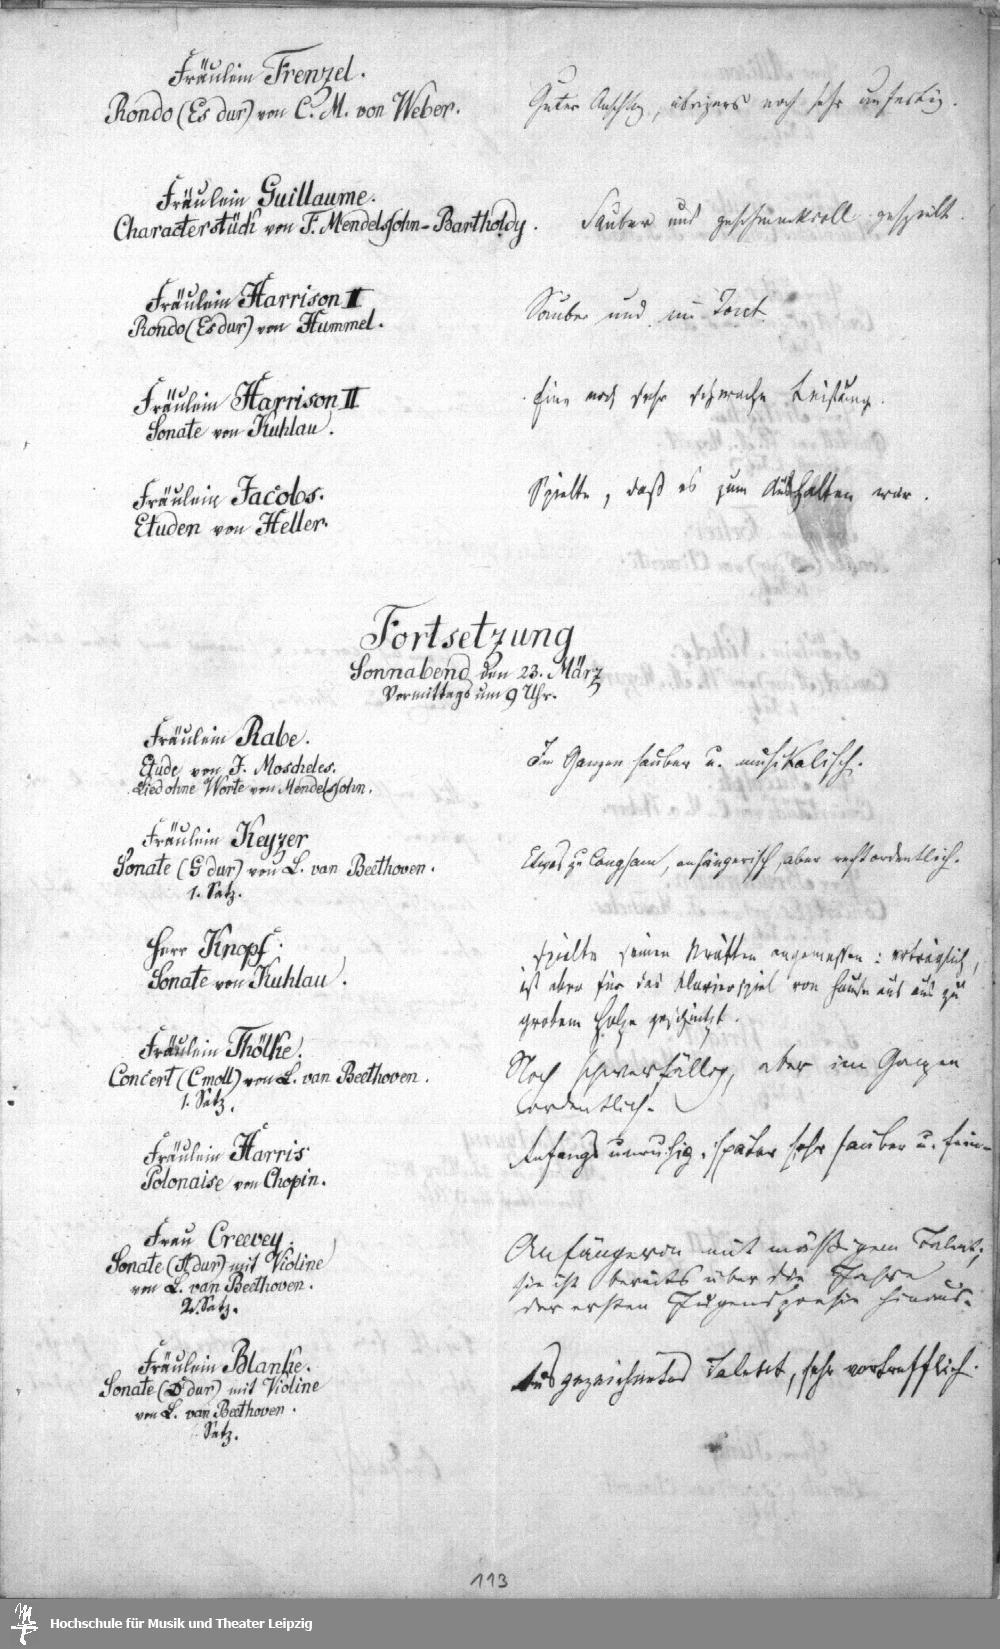 Fräulein Frenzel.
Rondo (Es dur) von C. M. von Weber.
Guter Anschlag, übrigens noch sehr unfertig.
Fräulein Guillaume.
Characterstück von F. Mendelssohn-Bartholdy.
Sauber und geschmackvoll gespielt.
Fräulein Harrison II
Rondo (Es dur) von Hummel.
Sauber und im Tact
Fräulein Harrison II
Sonate von Kuhlau.
Eine noch sehr schwache Leistung.
Fräulein Jacobs.
Etuden von Heller.
Spielte, daß es zum Aushalten war.
Fortsetzung
Sonnabend den 23. März
Vormittags um 9 Uhr.
Fräulein Rabe.
Etude von J. Moscheles.
Lied ohne Worte von Mendelssohn.
Im Ganzen sauber u. musikalisch.
Fräulein Keyzer
Sonate (G dur) von L. van Beethoven.
1. Satz.
Etwas zu langsam, anfängerisch, aber recht ordentlich.
Herr Knopf.
Sonate von Kuhlau.
spielte seinen Kräften angemessen: erträglich,
ist aber für das Klavierspiel von Hause aus aus zu
grobem Holze geschnitzt.
Fräulein Thölke.
Concert (C moll) von L. van Beethoven.
1. Satz.
Noch schwerfällig, aber im Ganzen
ordentlich.
Fräulein Harris
Polonaise von Chopin.
Anfangs unruhig, später sehr sauber u. fein
Frau Creevey.
Sonate (A dur) mit Violine
von L. van Beethoven.
2. Satz.
Anfängerin mit mäßigem Talent;
sie ist bereits über die Jahre
der ersten Jugendpoesie hinaus.
Fräulein Blanke.
Sonate (D dur) mit Violine
von L. van Beethoven.
Satz.
Ausgezeichnetes Talent, sehr vortrefflich.
113
Hochschule für Musik und Theater Leipzig